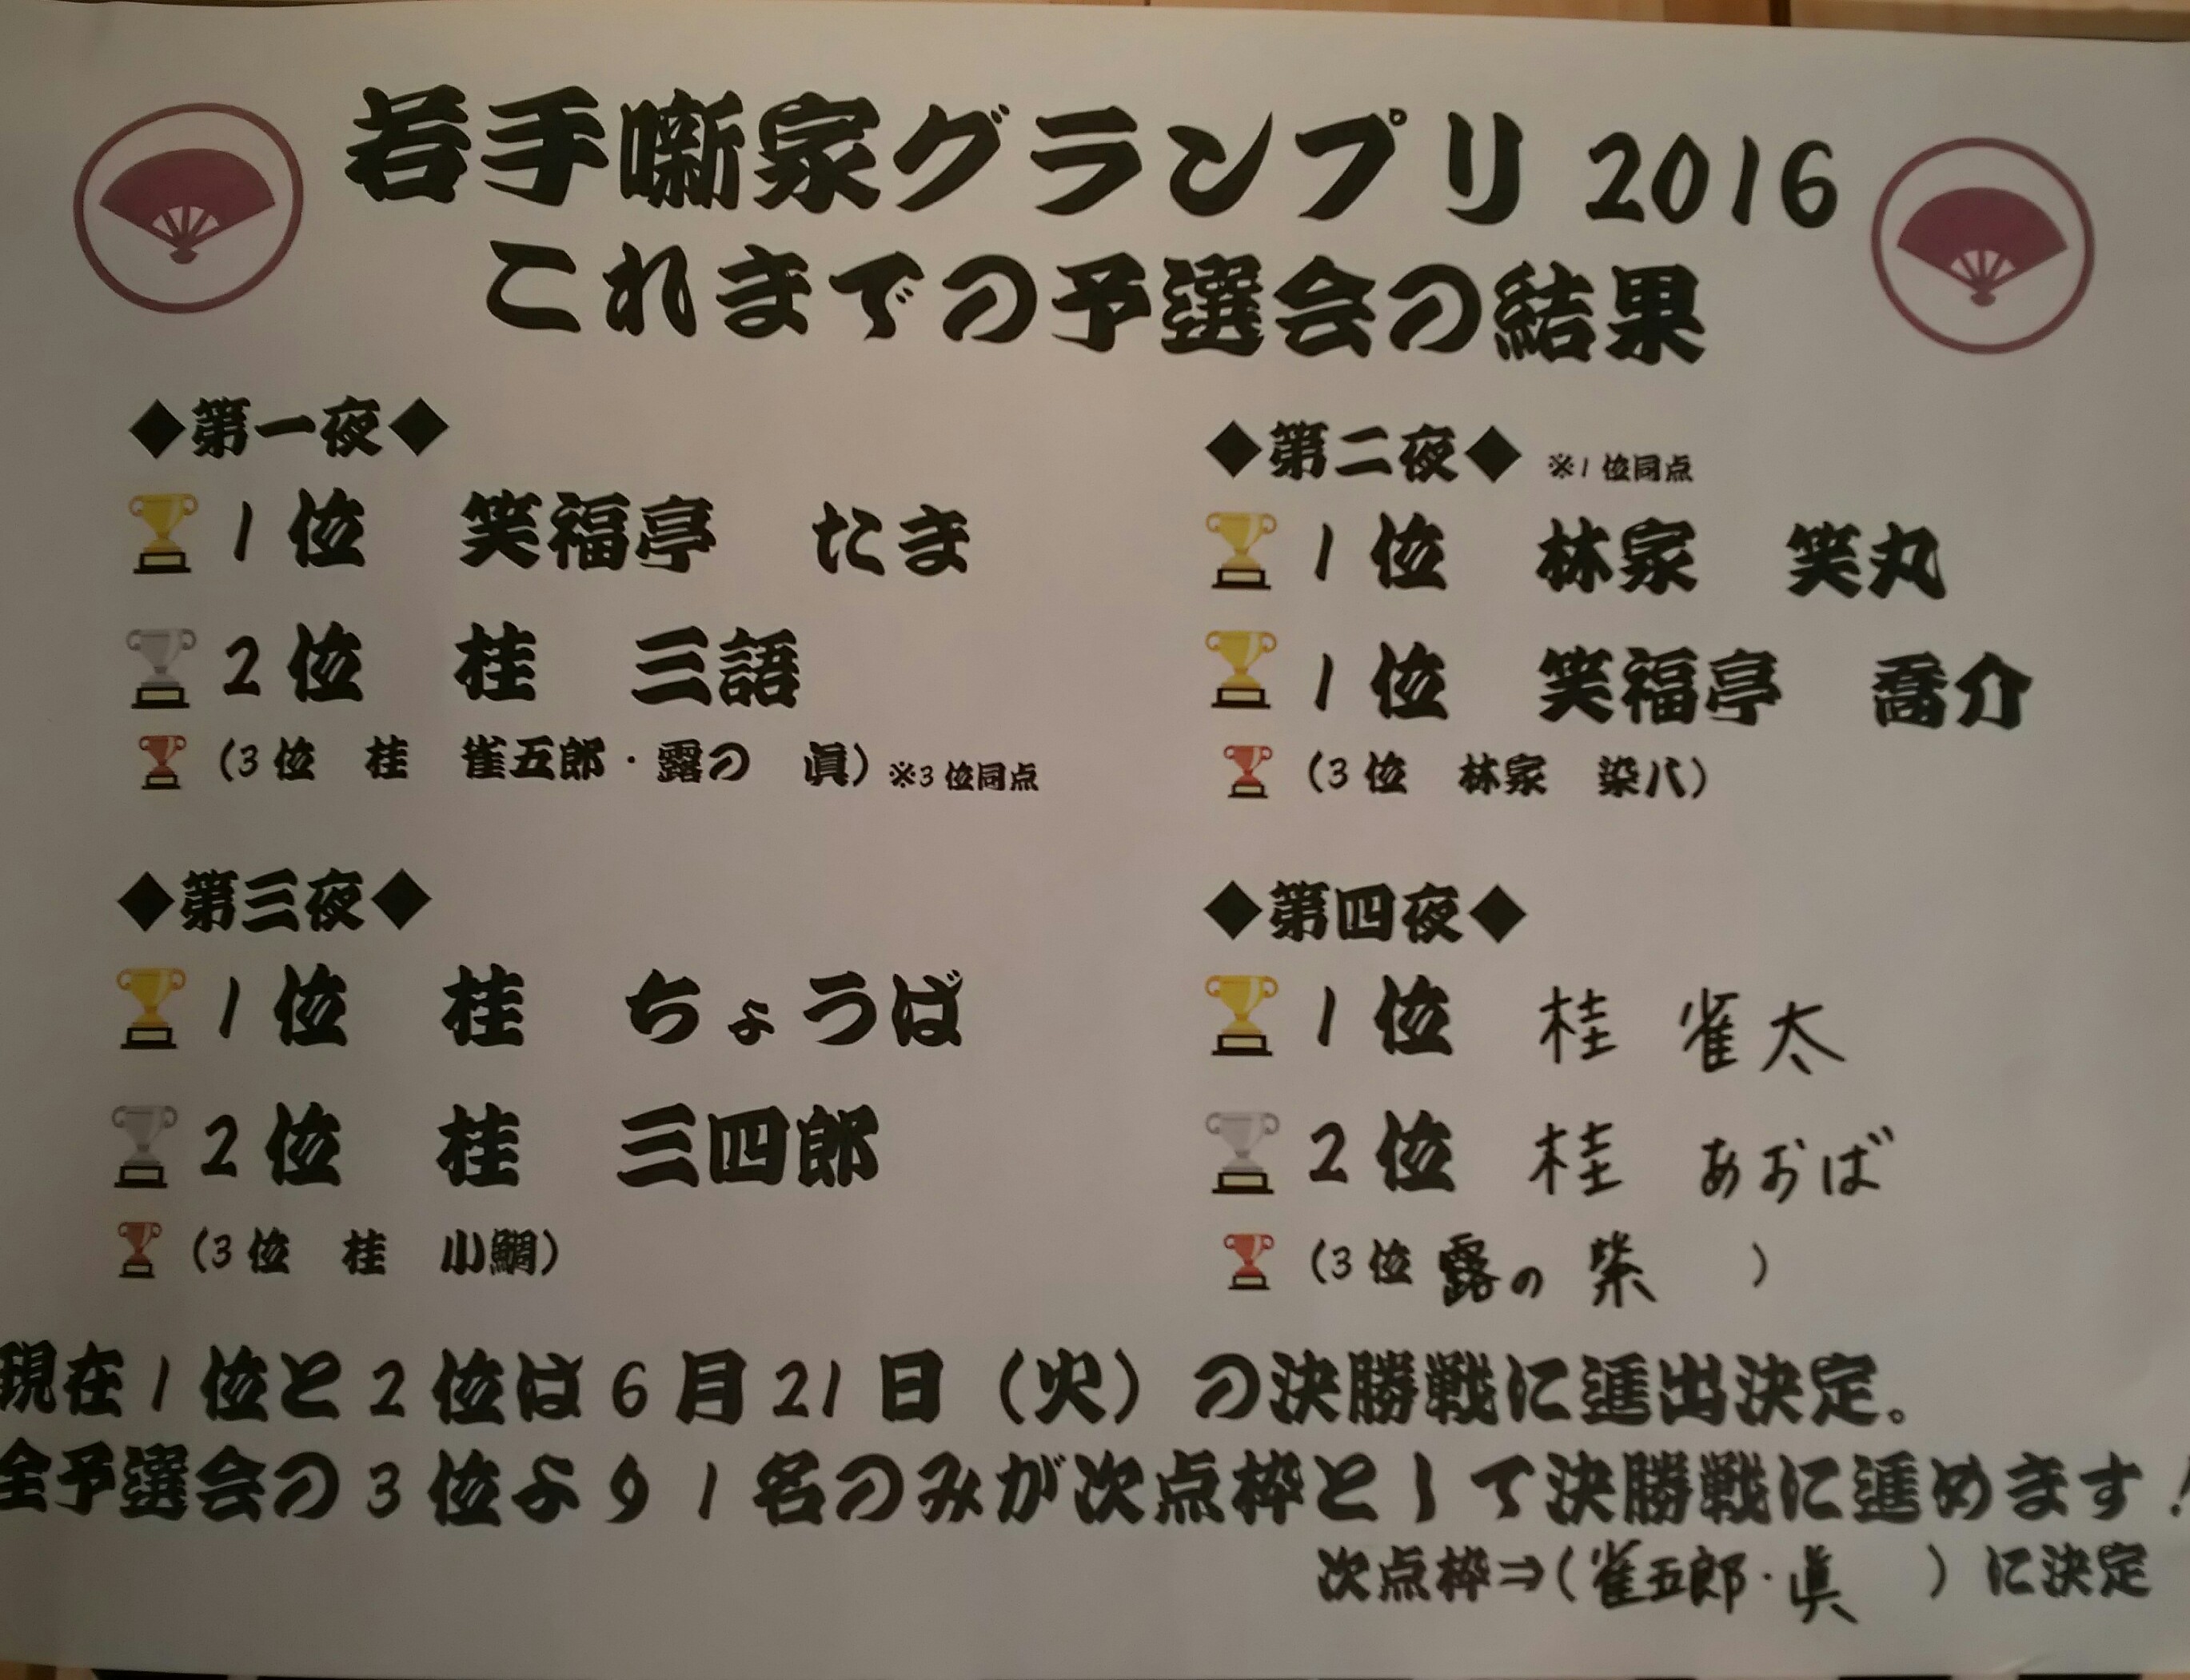 若手噺家グランプリ 2016
これまでの予選会の結果
◆第一夜◆
1位 笑福亭 たま
2位 桂 三語
(3位 桂 雀五郎・露の 眞) ※3位同点
◆第二夜◆ ※1位同点
1位 林家 笑丸
1位 笑福亭 喬介
(3位 林家 染八)
◆第三夜◆
1位 桂 ちょうば
2位 桂 三四郎
(3位 桂 小鯛)
◆第四夜◆
1位 桂 雀太
2位 桂 あおば
(3位 露の 紫 )
現在1位と2位は6月21日(火)の決勝戦に進出決定。
全予選会の3位より1名のみが次点枠として決勝戦に進めます!
次点枠⇒(雀五郎・眞 )に決定